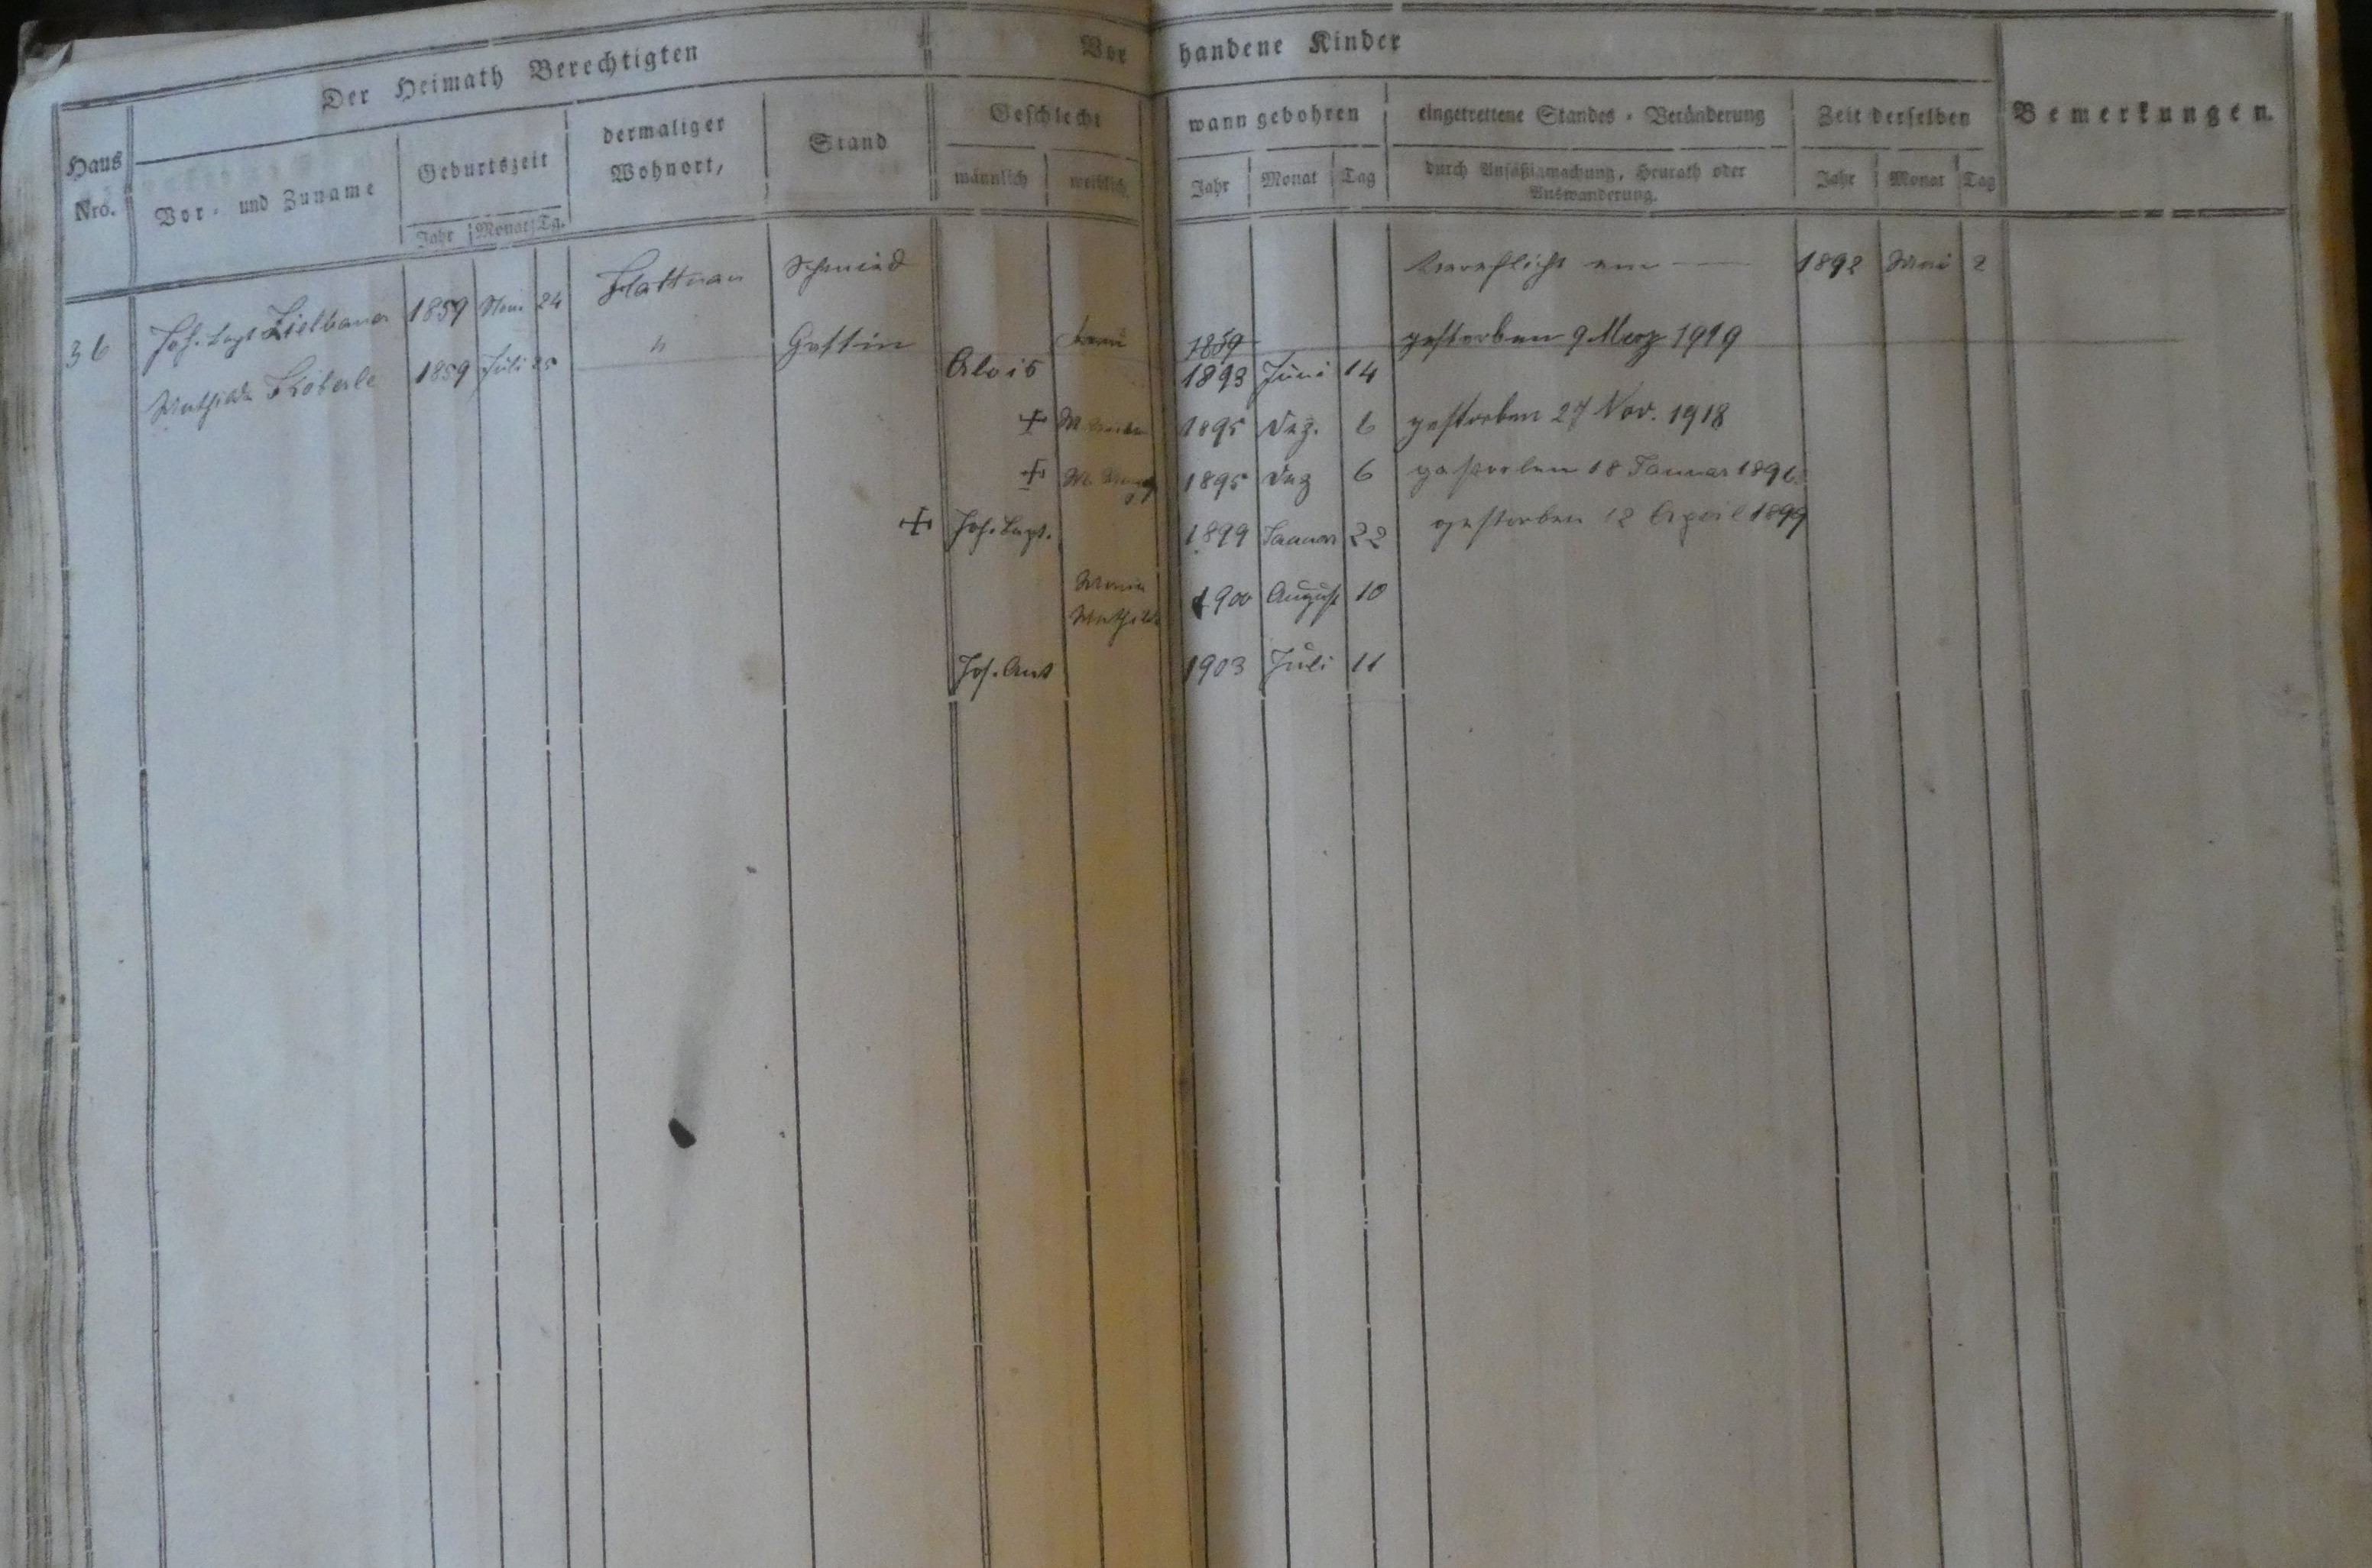 Der Heimath Berechtigten
Vorhandene Kinder
Bemerkungen.
Haus Nro.
Vor- und Zuname
Geburtszeit
Jahr Monat Tg.
dermaliger Wohnort,
Stand
Geschlecht
männlich weiblich.
wann gebohren
Jahr Monat Tag
eingetrettene Standes-Veränderung
durch Ansäßigmachung, Heurath oder
Auswanderung.
Zeit derselben
Jahr Monat Tag
36 Joh. Bapt 1859 Nov. 24 Schmied 1892 Mai 2
Mathilde 1859 Juli 25 " Gattin 1859 gestorben 9 Merz 1919
Alois 1893 Juni 14
+ M. 1895 Dez. 6 gestorben 27 Nov. 1918
+ M. 1895 Dez 6 gestorben 18 Januar 1896
+ Joh. Bapt. 1899 Januar 22 gestorben 12 April 1899
Maria
Mathilde 1900 August 10
Jos. Ant 1903 Juli 11